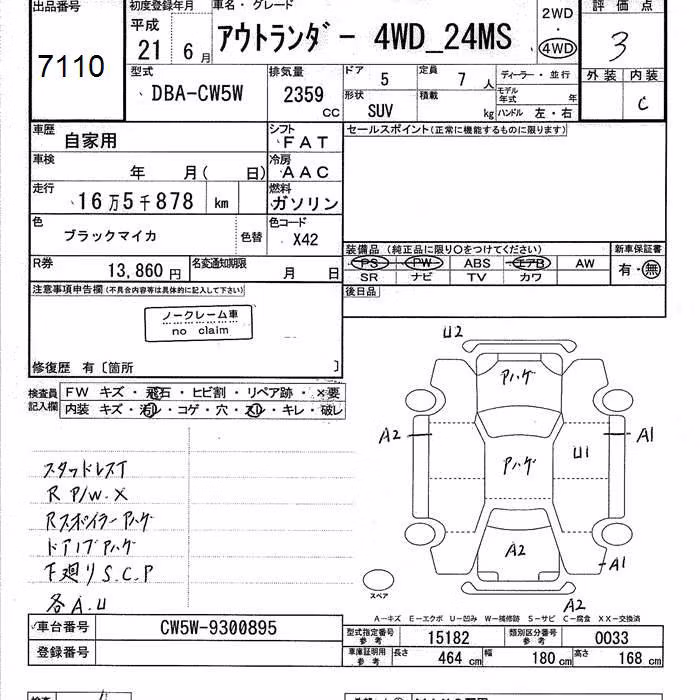 出品番号
7110
初度登録年月
平成
21 6月
車名・グレード
アウトランダー 4WD_24MS
2WD
・
4WD
評価点
3
外装 内装
C
型式
DBA-CW5W
排気量
2359
CC
ドア 5
定員 7 人
ディーラー・並行
形状
SUV
積載
kg
モデル
年式 年
ハンドル 左・右
車歴
自家用
シフト
FAT
セールスポイント(正常に機能するものに限ります)
車検
年 月( 日)
冷房
AAC
走行
16万5千878 km
燃料
ガソリン
色
ブラックマイカ
色替
色コード
X42
装備品 (純正品に限り〇をつけてください)
PS PW ABS エアB AW
SR ナビ TV カワ
新車保証書
有・無
R券
13,860 円
名変通知期限
月 日
後日品
注意事項申告欄(不具合内容等は具体的に記入して下さい)
ノークレーム車
no claim
修復歴 有〔箇所 〕
検査員
記入欄
FW キズ・飛石・ヒビ割・リペア跡・×要
内装 キズ・汚レ・コゲ・穴・スレ・キレ・破レ
スタッドレスT
R P/W.X
Rスポイラーアハゲ
ドアノブアハゲ
下廻りS.C.P
各A.U
U2
アハゲ
A2
A1
アハゲ
U1
A2
A1
A2
スペア
A-キズ E-エクボ U-凹み W-補修跡 S-サビ C-腐食 XX-交換済
車台番号
CW5W-9300895
登録番号
型式指定番号
参考
15182
類別区分番号
参考
0033
車庫証明用
参考
長さ 464 cm 幅 180 cm 高さ 168 cm